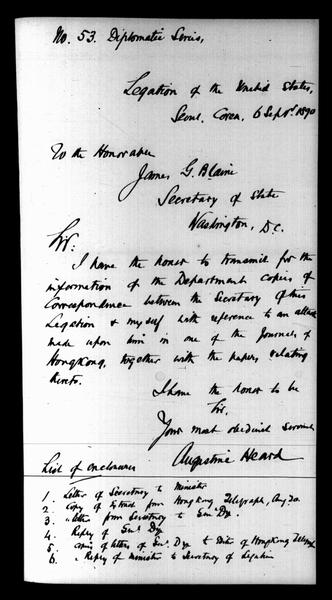 No. 53. Diplomatic Series,
Legation of the United States,
Seoul, Corea, 6 Sept. 1890
To the Honorable
James G. Blaine
Secretary of State
Washington, D.C.
Sir:
I have the honor to transmit for the
information of the Department copies of
Correspondence between the Secretary of this
Legation & myself with reference to an attack
made upon him in one of the Journals of
Hongkong, together with the papers relating
thereto.
I have the honor to be
Sir,
Your most obedient servant
Augustine Heard
List of enclosures
1. Letter of Secretary to Minister
2. Copy of extract from Hongkong Telegraph, Aug 20.
3. Letter from Secretary to Genl Dye.
4. Reply of Genl Dye
5. Copies of letters of Genl Dye to Editor of Hongkong Telegraph
6. Reply of Minister to Secretary of Legation